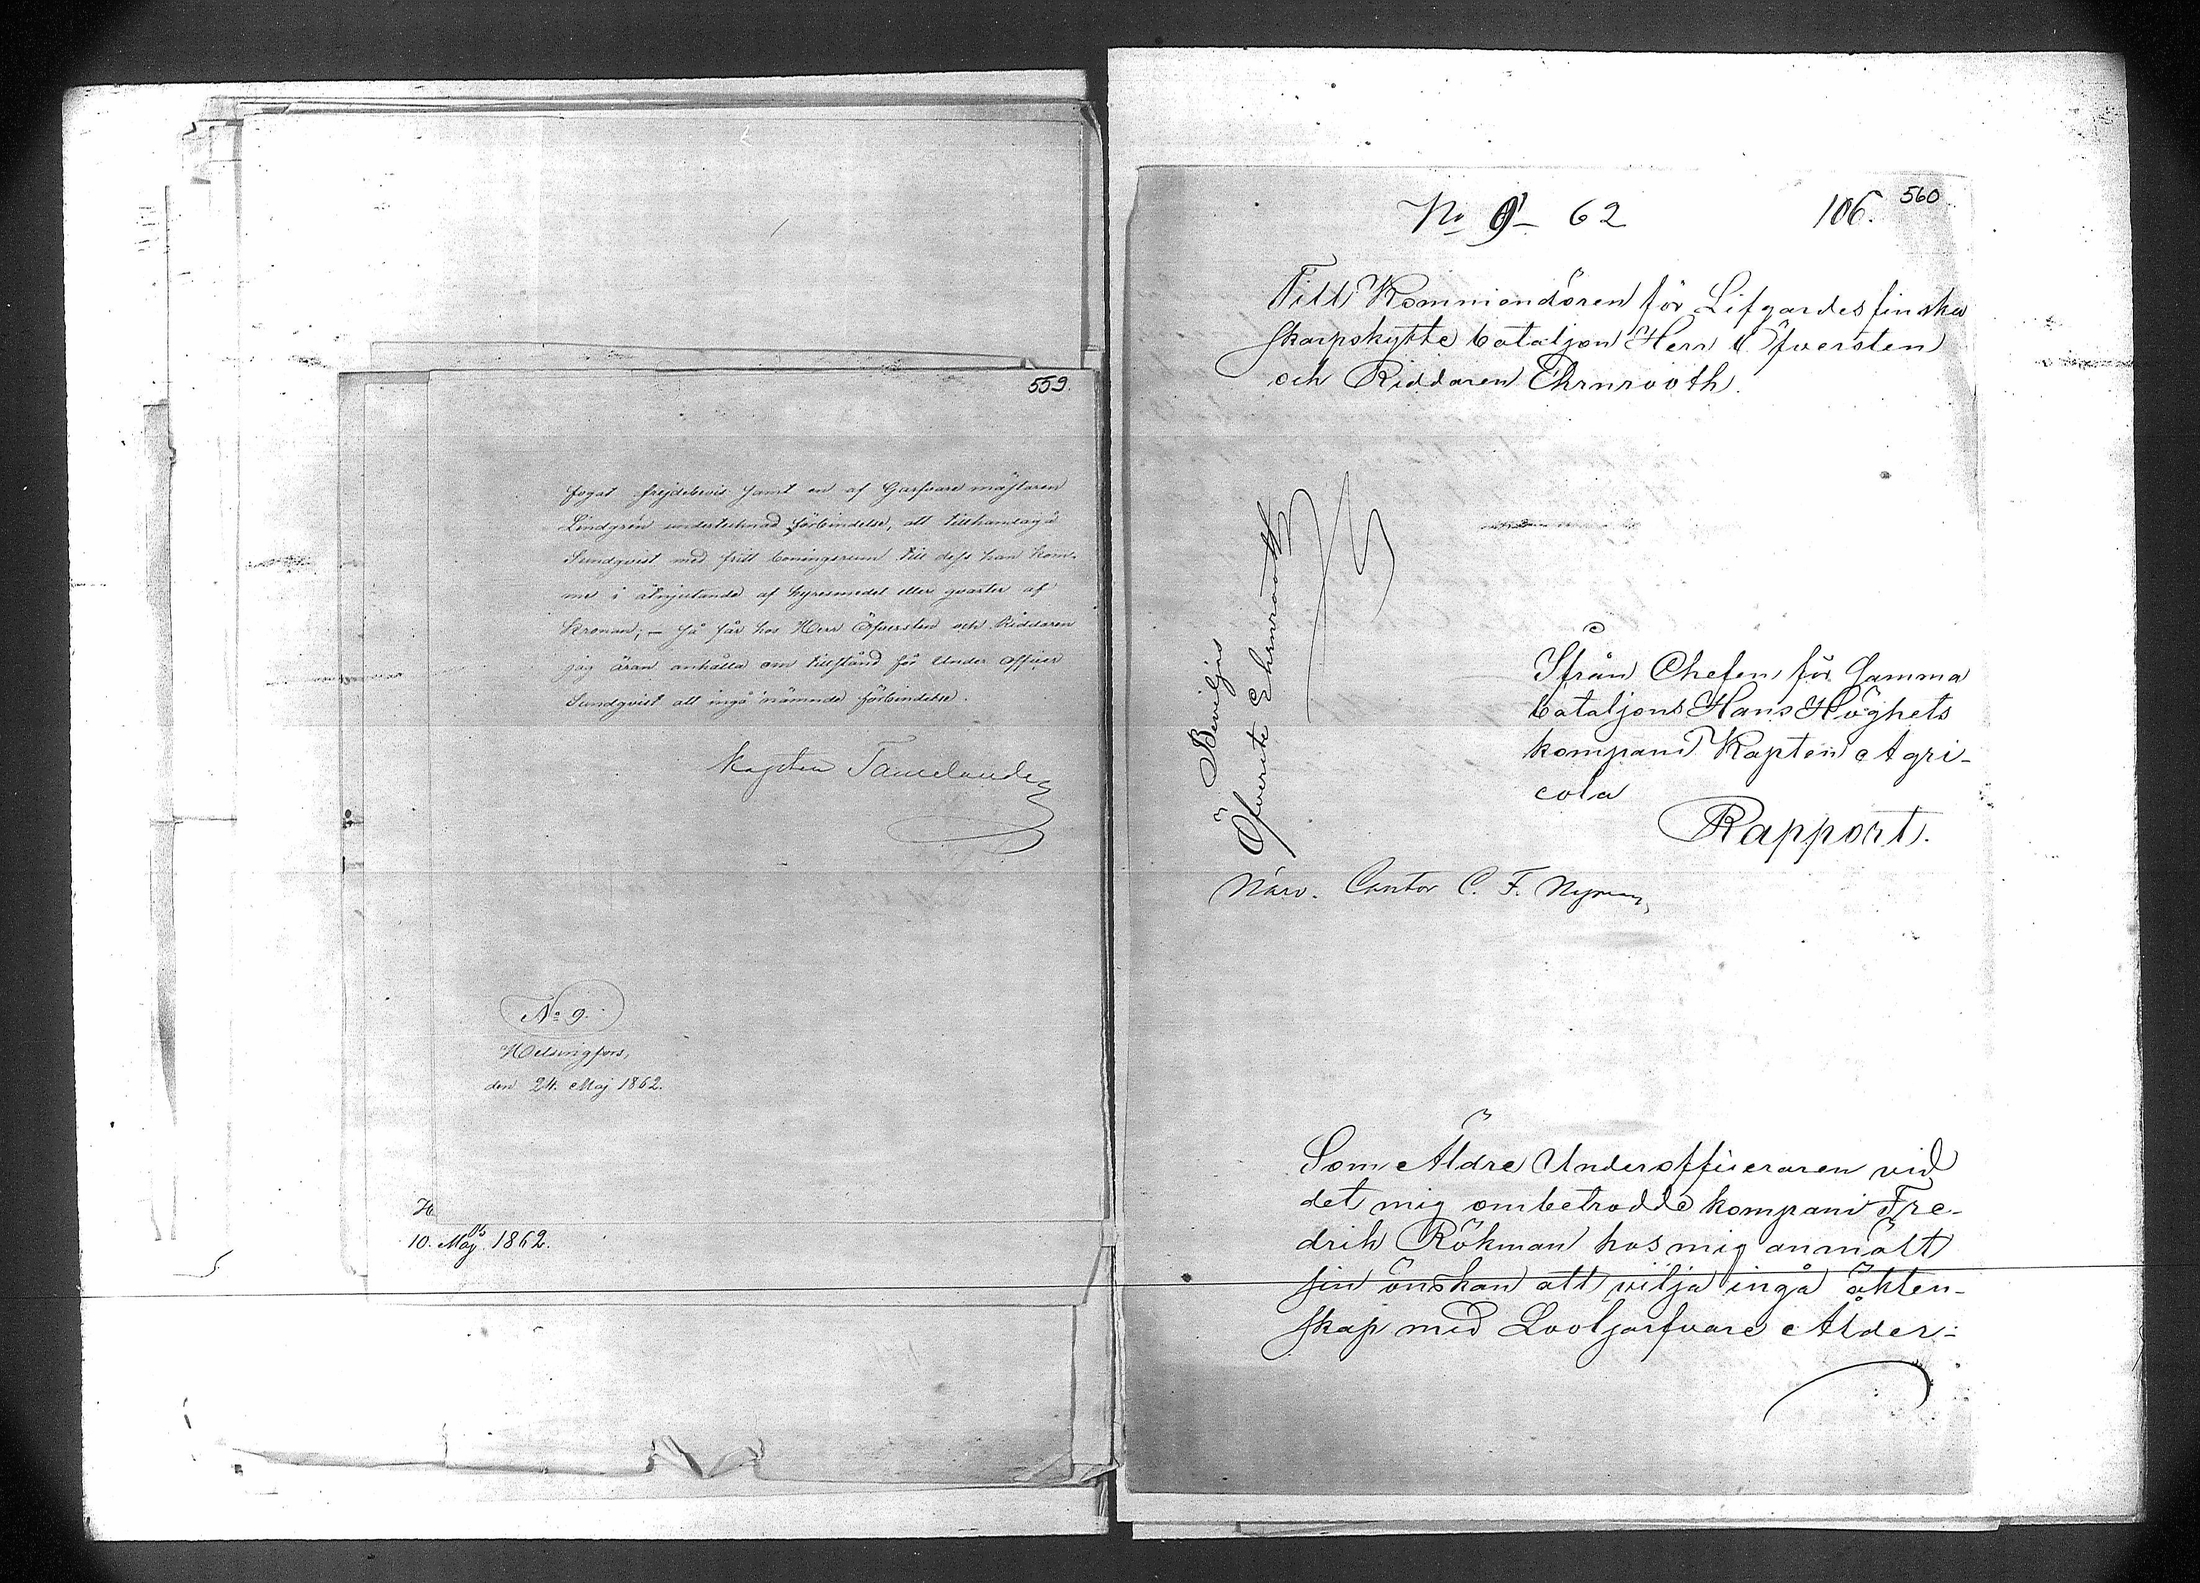 559.
fogat frejdebevis samt en af Garfvare mästaren
Lindgrén undertecknad förbindelse, att tillhandagå
Sundqvist med fritt boningsrum till dess han kom-
me i åtnjutande af hyresmedel eller qvarter af
Kronan; – så får hos Herr Öfversten och Riddaren
jag äran anhålla om tillstånd för Under Officer
Sundqvist att ingå nämnde förbindelse.
Kapten
No 9.
Helsingfors,
den 24. Maj 1862.
H
10. Maj 1862.
560
No 9 – 62 106.
Till Kommendören för Lifgardes finska
skarpskytte bataljon Herr Öfversten
och Riddaren Ehrnrooth.
Beviljas
Öfverste Ehrnrooth
Ifrån Chefen för Samma
bataljons Hans Höghets
kompani Kapten Agri-
cola
Rapport.
Närv. Cantor C. F. Nyman
Som Äldre Underofficeraren vid
det mig ombetrodde kompani Fre-
drik Rökman hos mig anmält
sin önskan att vilja ingå äkten-
skap med Garfvare Ålder-